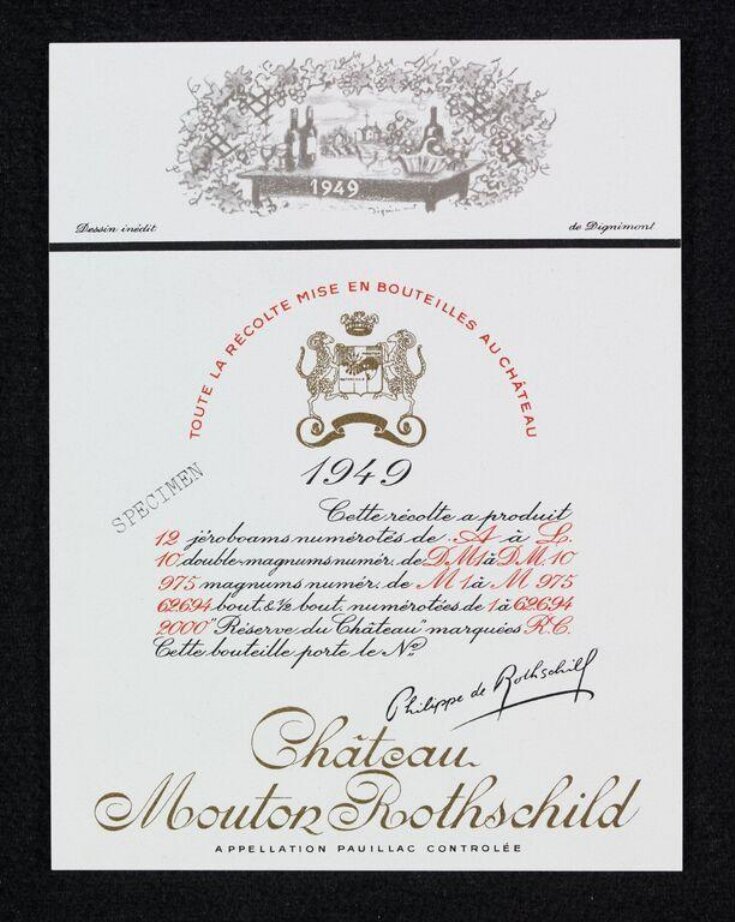 1949
Dignimont
Dessin inédit
de Dignimont
TOUTE LA RÉCOLTE MISE EN BOUTEILLES AU CHÂTEAU
1949
SPECIMEN
Cette récolte a produit
12 jéroboams numérotés de A à L.
10 double-magnums numér. de D.M.1 à D.M. 10
975 magnums numér. de M 1 à M 975
62694 bout. & ½ bout. numérotées de 1 à 62694
2000 "Réserve du Château" marquées R.C.
Cette bouteille porte le Nº
Philippe de Rothschild
Château
Mouton Rothschild
APPELLATION PAUILLAC CONTROLÉE